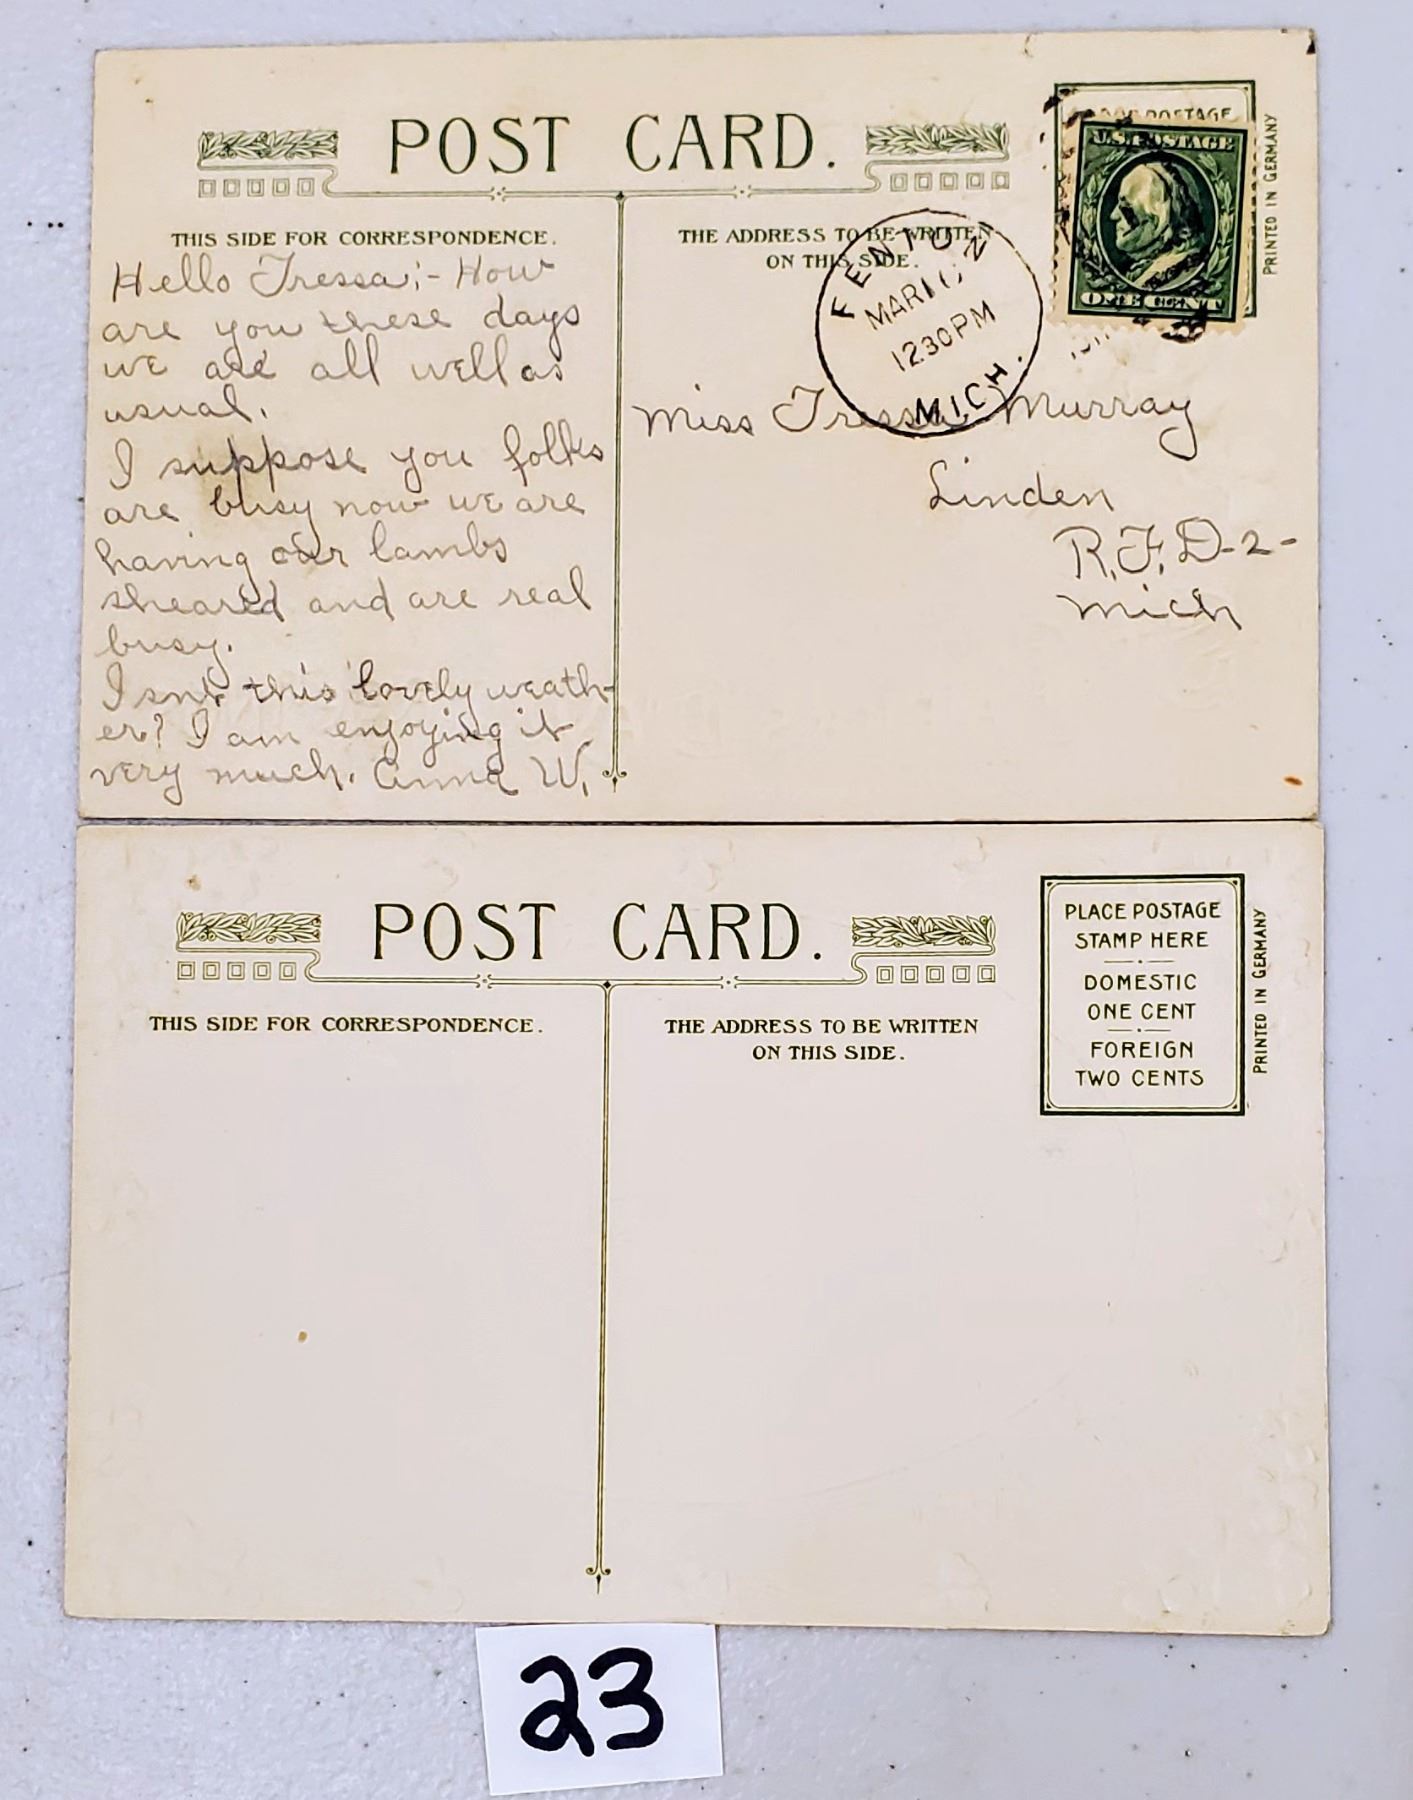 POST CARD.
THIS SIDE FOR CORRESPONDENCE.
THE ADDRESS TO BE WRITTEN
ON THIS SIDE.
POSTAGE
U.S. POSTAGE
ONE CENT
PRINTED IN GERMANY
FENTON
MAR
12 30 PM
MICH.
Hello Tressa;- How
are you these days
we are all well as
usual.
I suppose you folks
are busy now we are
having our lambs
sheared and are real
busy.
Isnt this lovely weath-
er? I am enjoying it
very much. Anna W.
Miss Tressa Murray
Linden
R.F.D-2-
Mich
POST CARD.
THIS SIDE FOR CORRESPONDENCE.
THE ADDRESS TO BE WRITTEN
ON THIS SIDE.
PLACE POSTAGE
STAMP HERE
DOMESTIC
ONE CENT
FOREIGN
TWO CENTS
PRINTED IN GERMANY
23